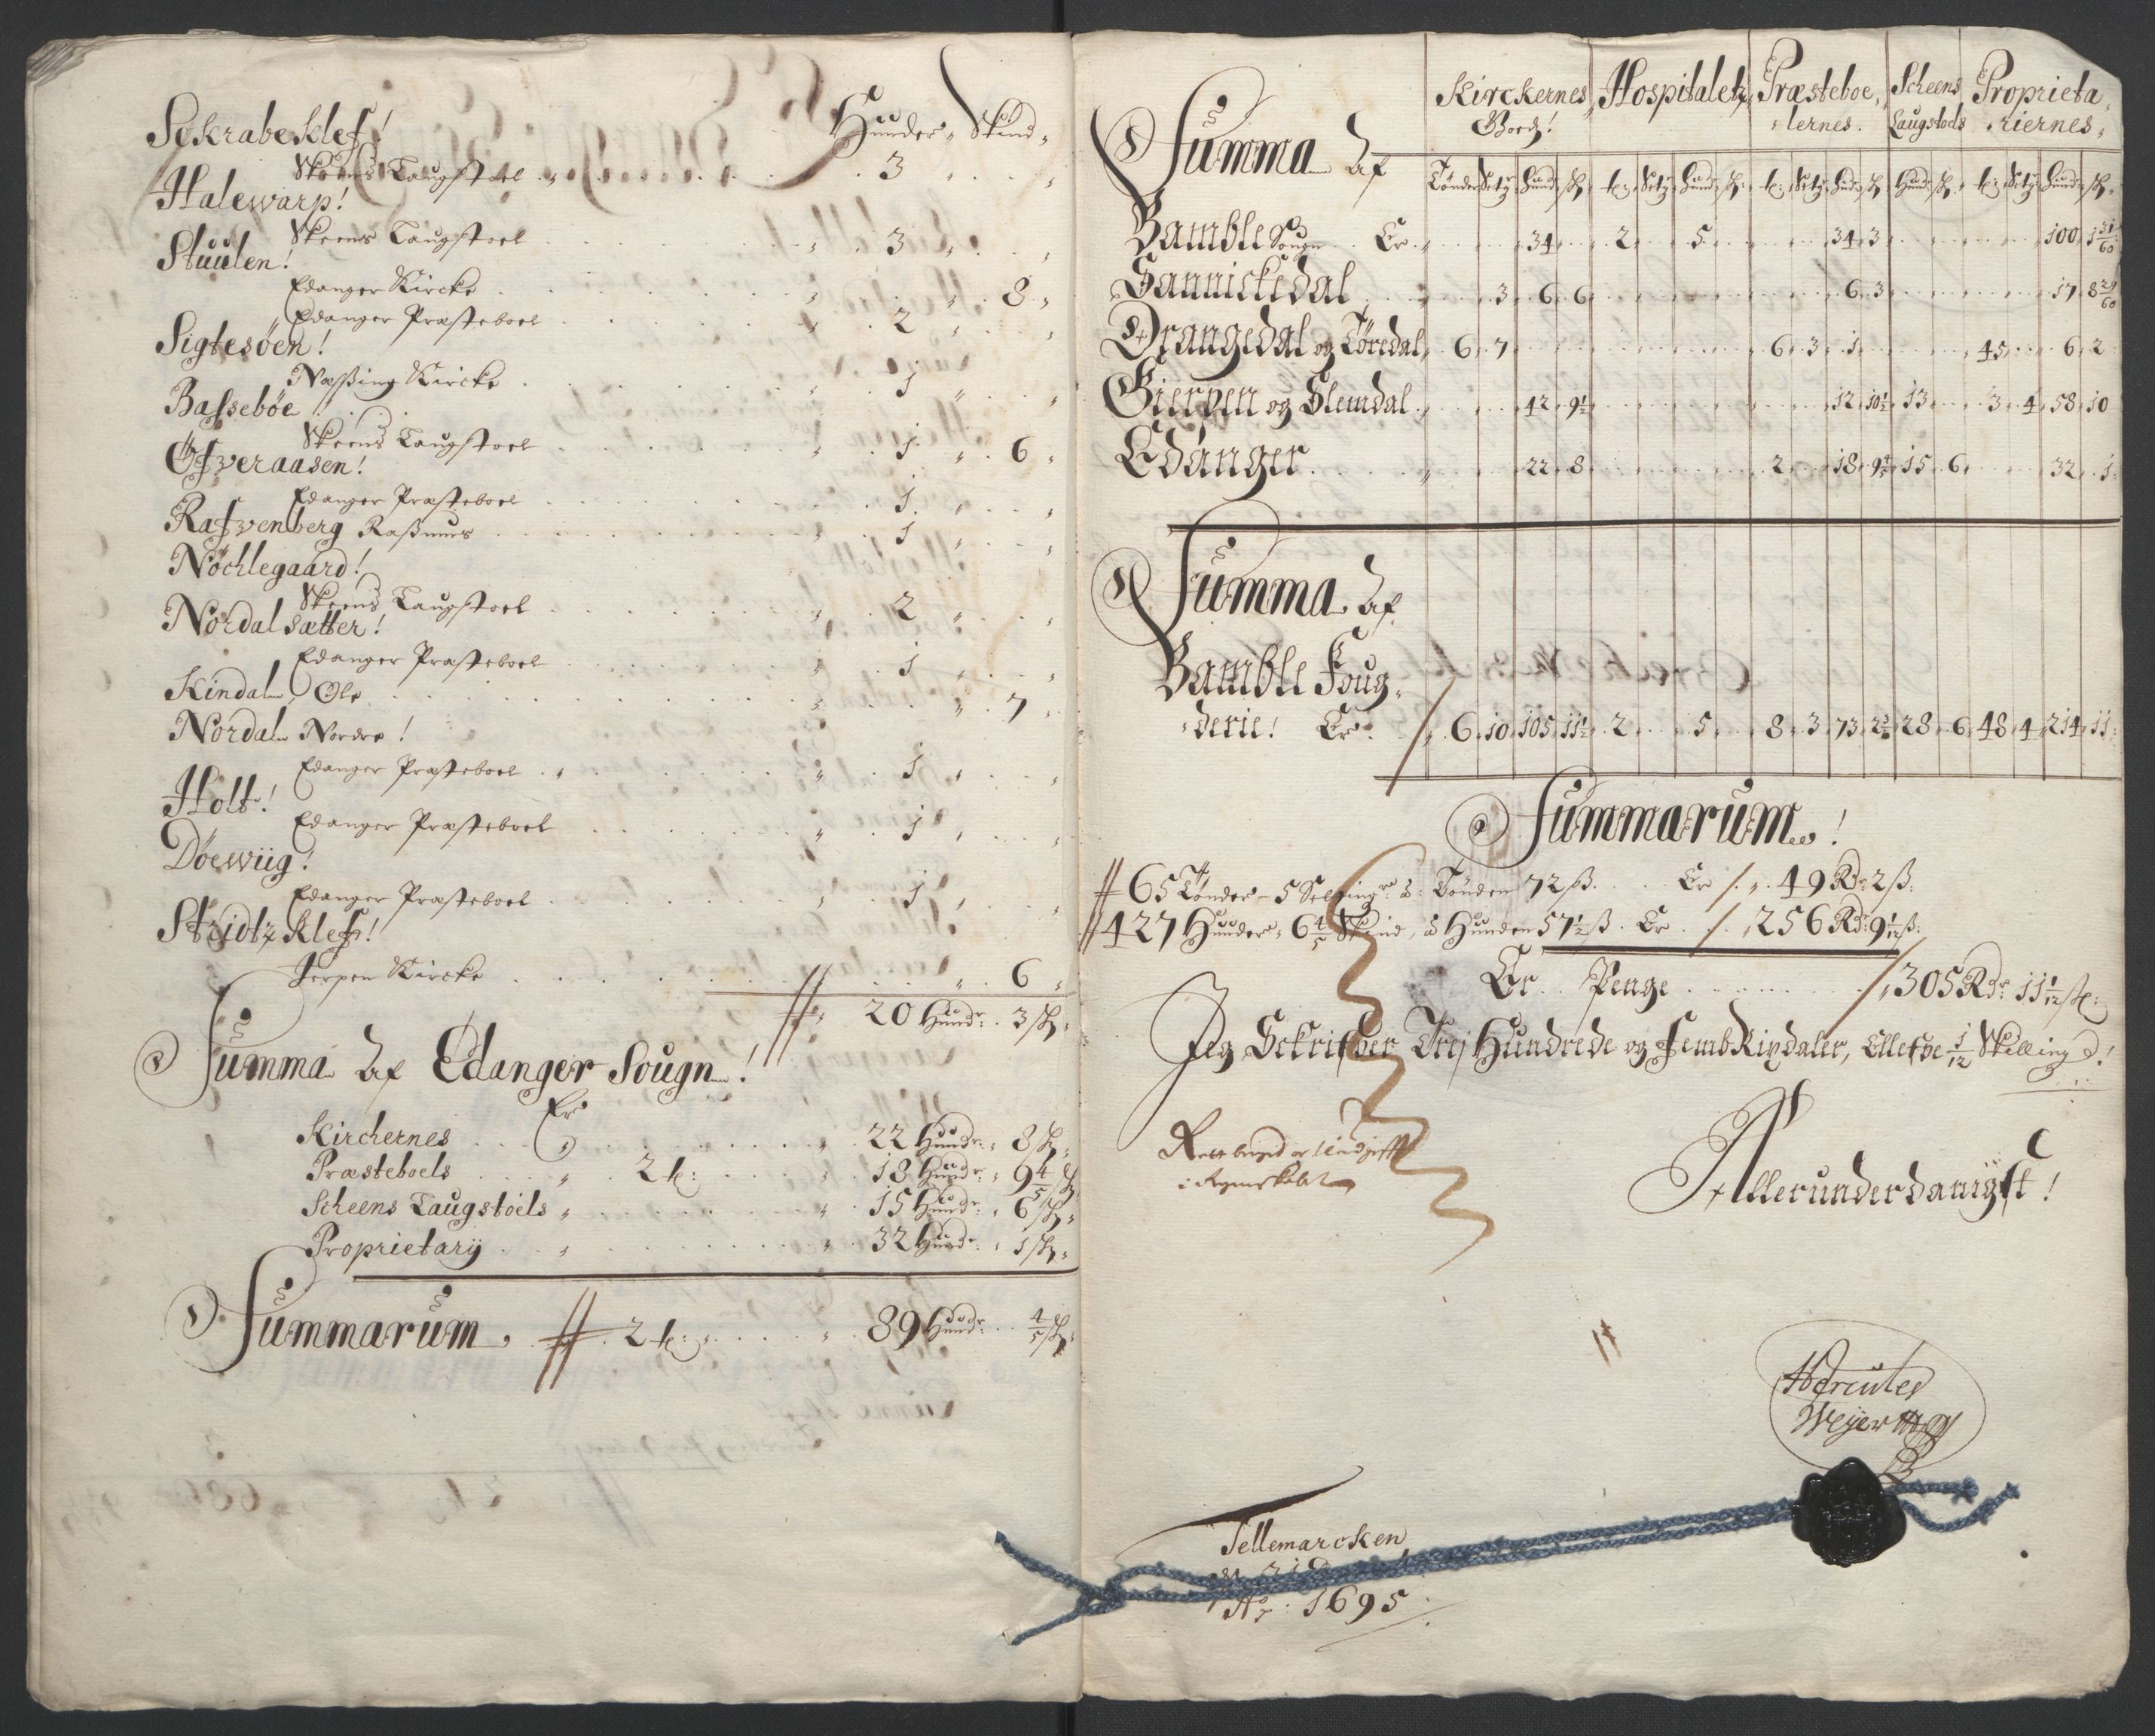 Hunder„ Skind„
Sckrabeklef!
Skeens Laugstoel . . 3
Halewarp!
Skeens Laugstoel . . 3
Stuulen!
Edanger Kircke . . 8
Edanger Præsteboel . . 2
Sigtesöen!
Næssing Kircke . . 1
Basseböe!
Skeens Laugstoel . . 1 „ 6
Öfveraasen!
Edanger Præsteboel . . 1
Rafvenberg Rassmus . . 1
Nöchlegaard!
Skeens Laugstoel . . 2
Nordal sætter!
Edanger Præsteboel . . 1
Kindal, Ole . . 7
Nordal Nordre!
Edanger Præsteboel . . 1
Holt!
Edanger Præsteboel . . 1
Döewiig!
Edanger Præsteboel . . 1
Stridtz klef!
Jerpen Kircke . . 6
20 Hundr: 3 sk:
Summa Af Edanger Sougn!
Er
Kirchernes . . 22 Hundr: 8 sk:
Præsteboels . . 2 t: . . 18 Hundr: 9 4/5 sk:
Scheens Laugstoels . . 15 Hundr: 6 sk:
Proprietarij . . 32 Hundr: 1 sk:
Summarum . . 2 t: . . 89 Hundr: 4/5 sk:
Summa Af
Kirckernes Goedz! Hospitaletz Præsteboelernes. Scheens Laugstols Proprietariernes„
Tönder Setr Hund: sk t: Setr Hund: sk: t: Setr Hud: sk Hund: sk: t: Setr Hund: sk:
Bamble Sougn . . Er . . 34 . . 2 . . 5 . . 34 „ 3 . . 100 „ 1 31/60
Sannickedal . . 3 „ 6 „ 6 . . 6 „ 3 . . 17 „ 8 29/60
Drangedal og Töredal „ 6 „ 7 . . 6 „ 3 „ 1 . . 45 . . 6 „ 2
Gierpen og Slemdal . . 42 „ 9 1/2 . . 12 „ 10 1/2 „ 13 . . 3 „ 4 „ 58 „ 10
Edanger . . 22 „ 8 . . 2 . . 18 „ 9 4/5 „ 15 „ 6 . . 32 „ 1
Summa Af
Bamble Foug„
derie! Er . . 6 „ 10 „ 105 „ 11 1/2 „ 2 . . 5 . . 8 „ 3 „ 73 „ 2 3/10 „ 28 „ 6 „ 48 „ 4 „ 214 „ 11
Summarum!
65 Tönder - 5 Setingr â: Tönden 72 ß. . . Er . . 49 Rdr 2 ß:
427 Hunder„ 6 4/5 Skind, â Hunden 57 1/2 ß. Er . . 256 Rdr 9 1/12 ß:
Er . . Penge . . 305 Rdr 11 1/12 sk:
Jeg Sckrifver Trej Hundrede og Femb Rixdaler, Ellefve 1/12 Skelling d!
i Regenskabet
Allerunderdanigst!
Hercules
Weyer
Tellemarcken
Ao: 1695